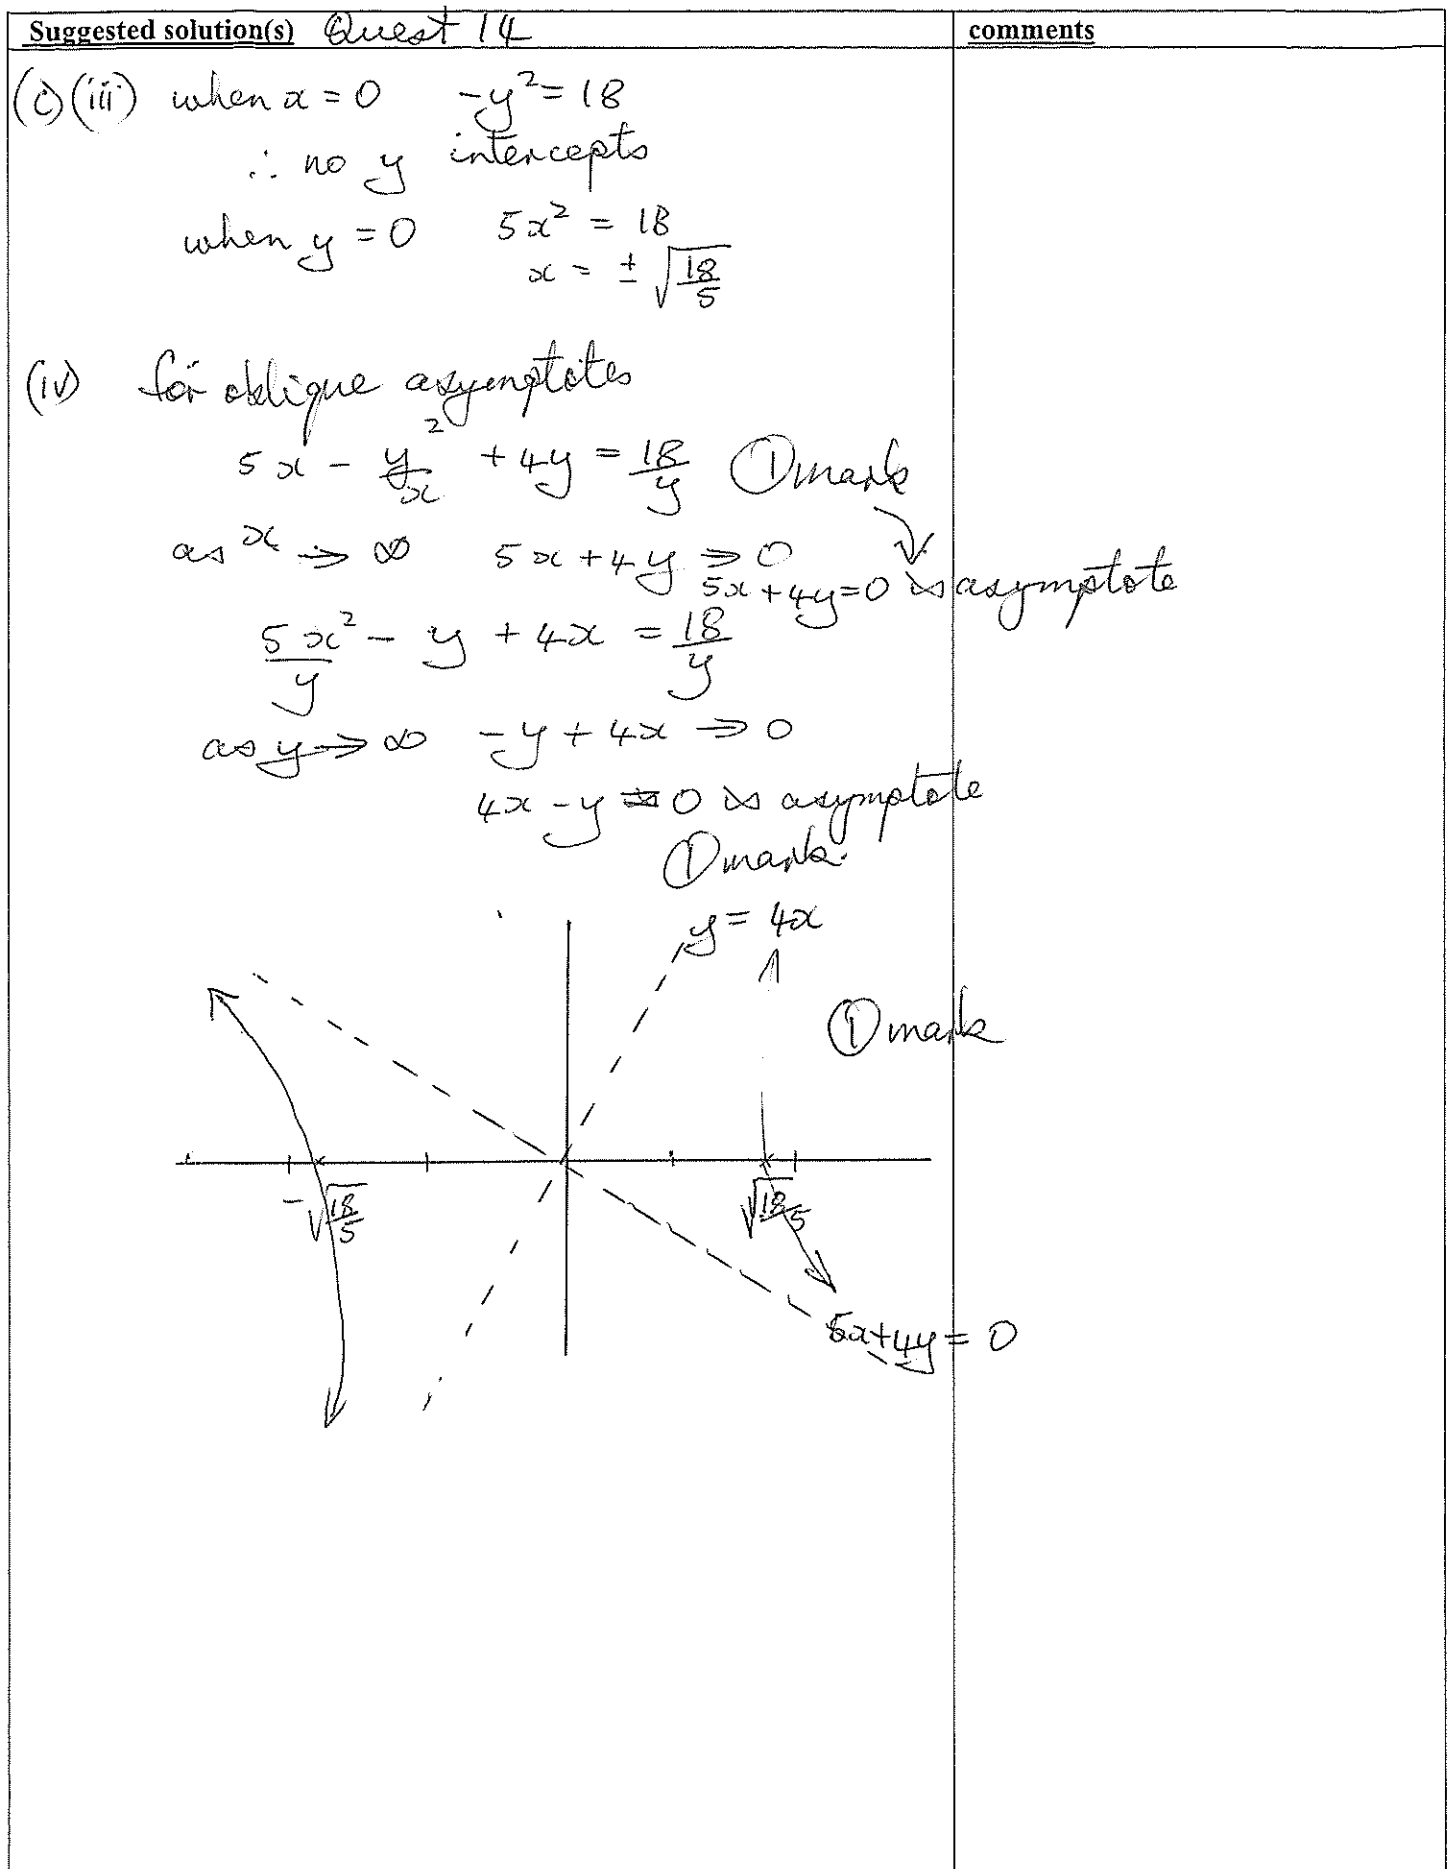 Suggested solution(s) Quest 14
comments
(c) (iii) when x = 0 -y² = 18
∴ no y intercepts
when y = 0 5x² = 18
x = ± √(18/5)
(iv) for oblique asymptotes
5x - y²/x + 4y = 18/y ① mark
as x → ∞ 5x + 4y → 0
5x + 4y = 0 is asymptote
5x²/y - y + 4x = 18/y
as y → ∞ -y + 4x → 0
4x - y = 0 is asymptote
① mark.
y = 4x
① mark
-√(18/5) √(18/5)
5x + 4y = 0